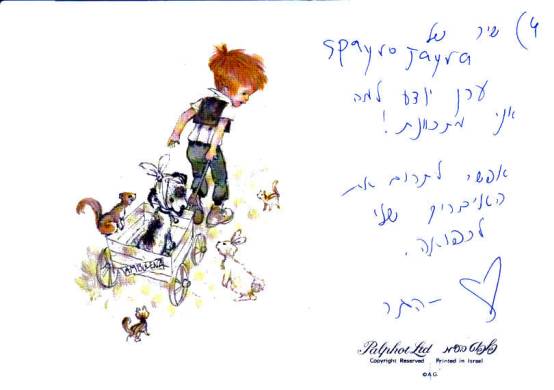 4) שיר של
Spayro Jayra
ערן יודע למה
אני מתכוונת!
אפשר לתרום את
האיברים שלי
לרפואה.
–הגר
AMBULENZA
Palphot Ltd פלפוט בע"מ
Copyright Reserved Printed in Israel
© A.G.